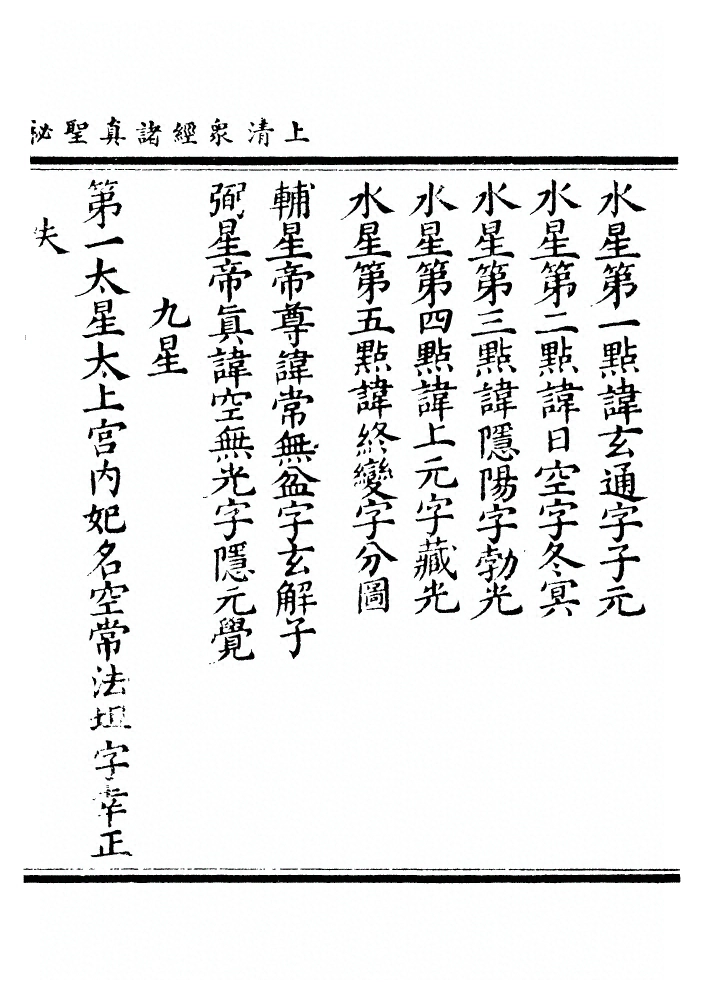 上清衆經諸真聖祕
水星第一點諱玄通字子元
水星第二點諱日空字冬冥
水星第三點諱隱陽字勃光
水星第四點諱上元字藏光
水星第五點諱終變字分圖
輔星帝尊諱常無盆字玄解子
弼星帝真諱空無光字隱元覺
九星
第一太星太上宮內妃名空常法珽字幸正
失